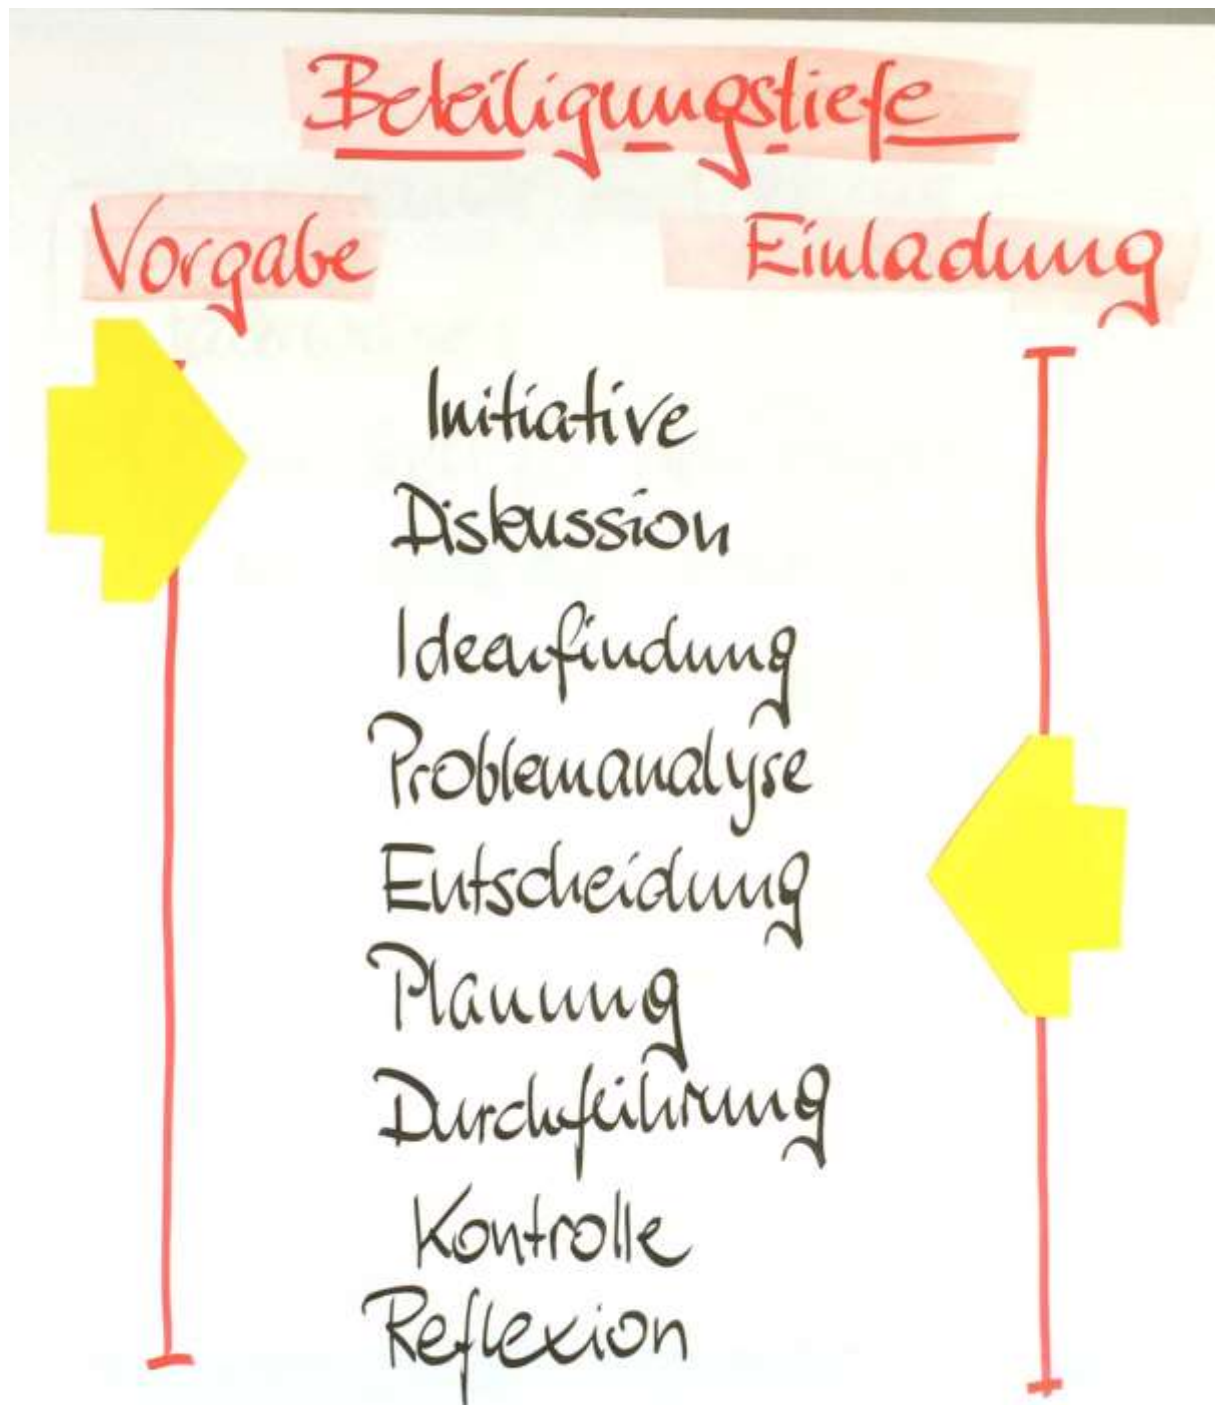 Beteiligungstiefe
Vorgabe Einladung
Initiative
Diskussion
Ideenfindung
Problemanalyse
Entscheidung
Planung
Durchführung
Kontrolle
Reflexion